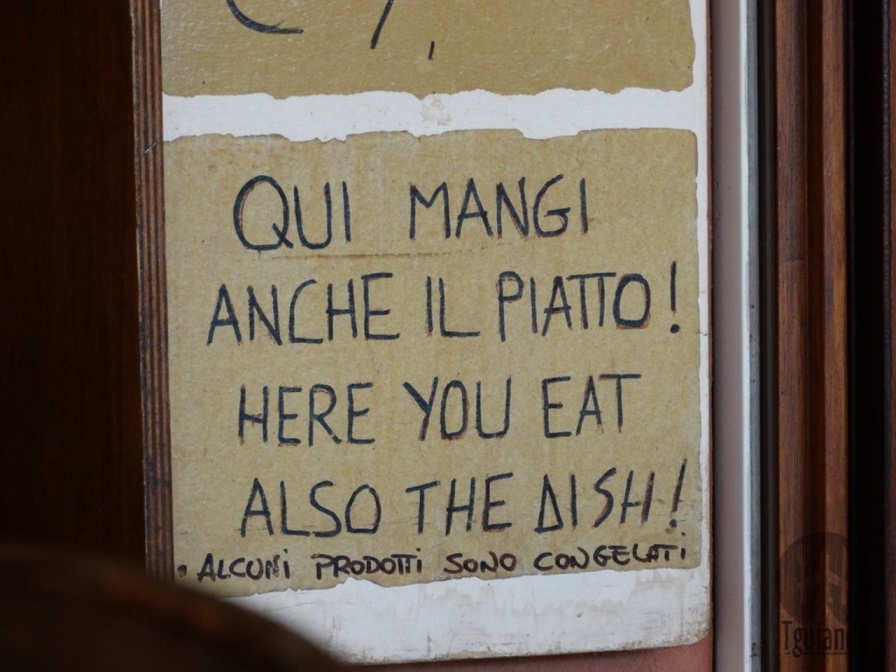 QUI MANGI
ANCHE IL PIATTO!
HERE YOU EAT
ALSO THE DISH!
• ALCUNI PRODOTTI SONO CONGELATI